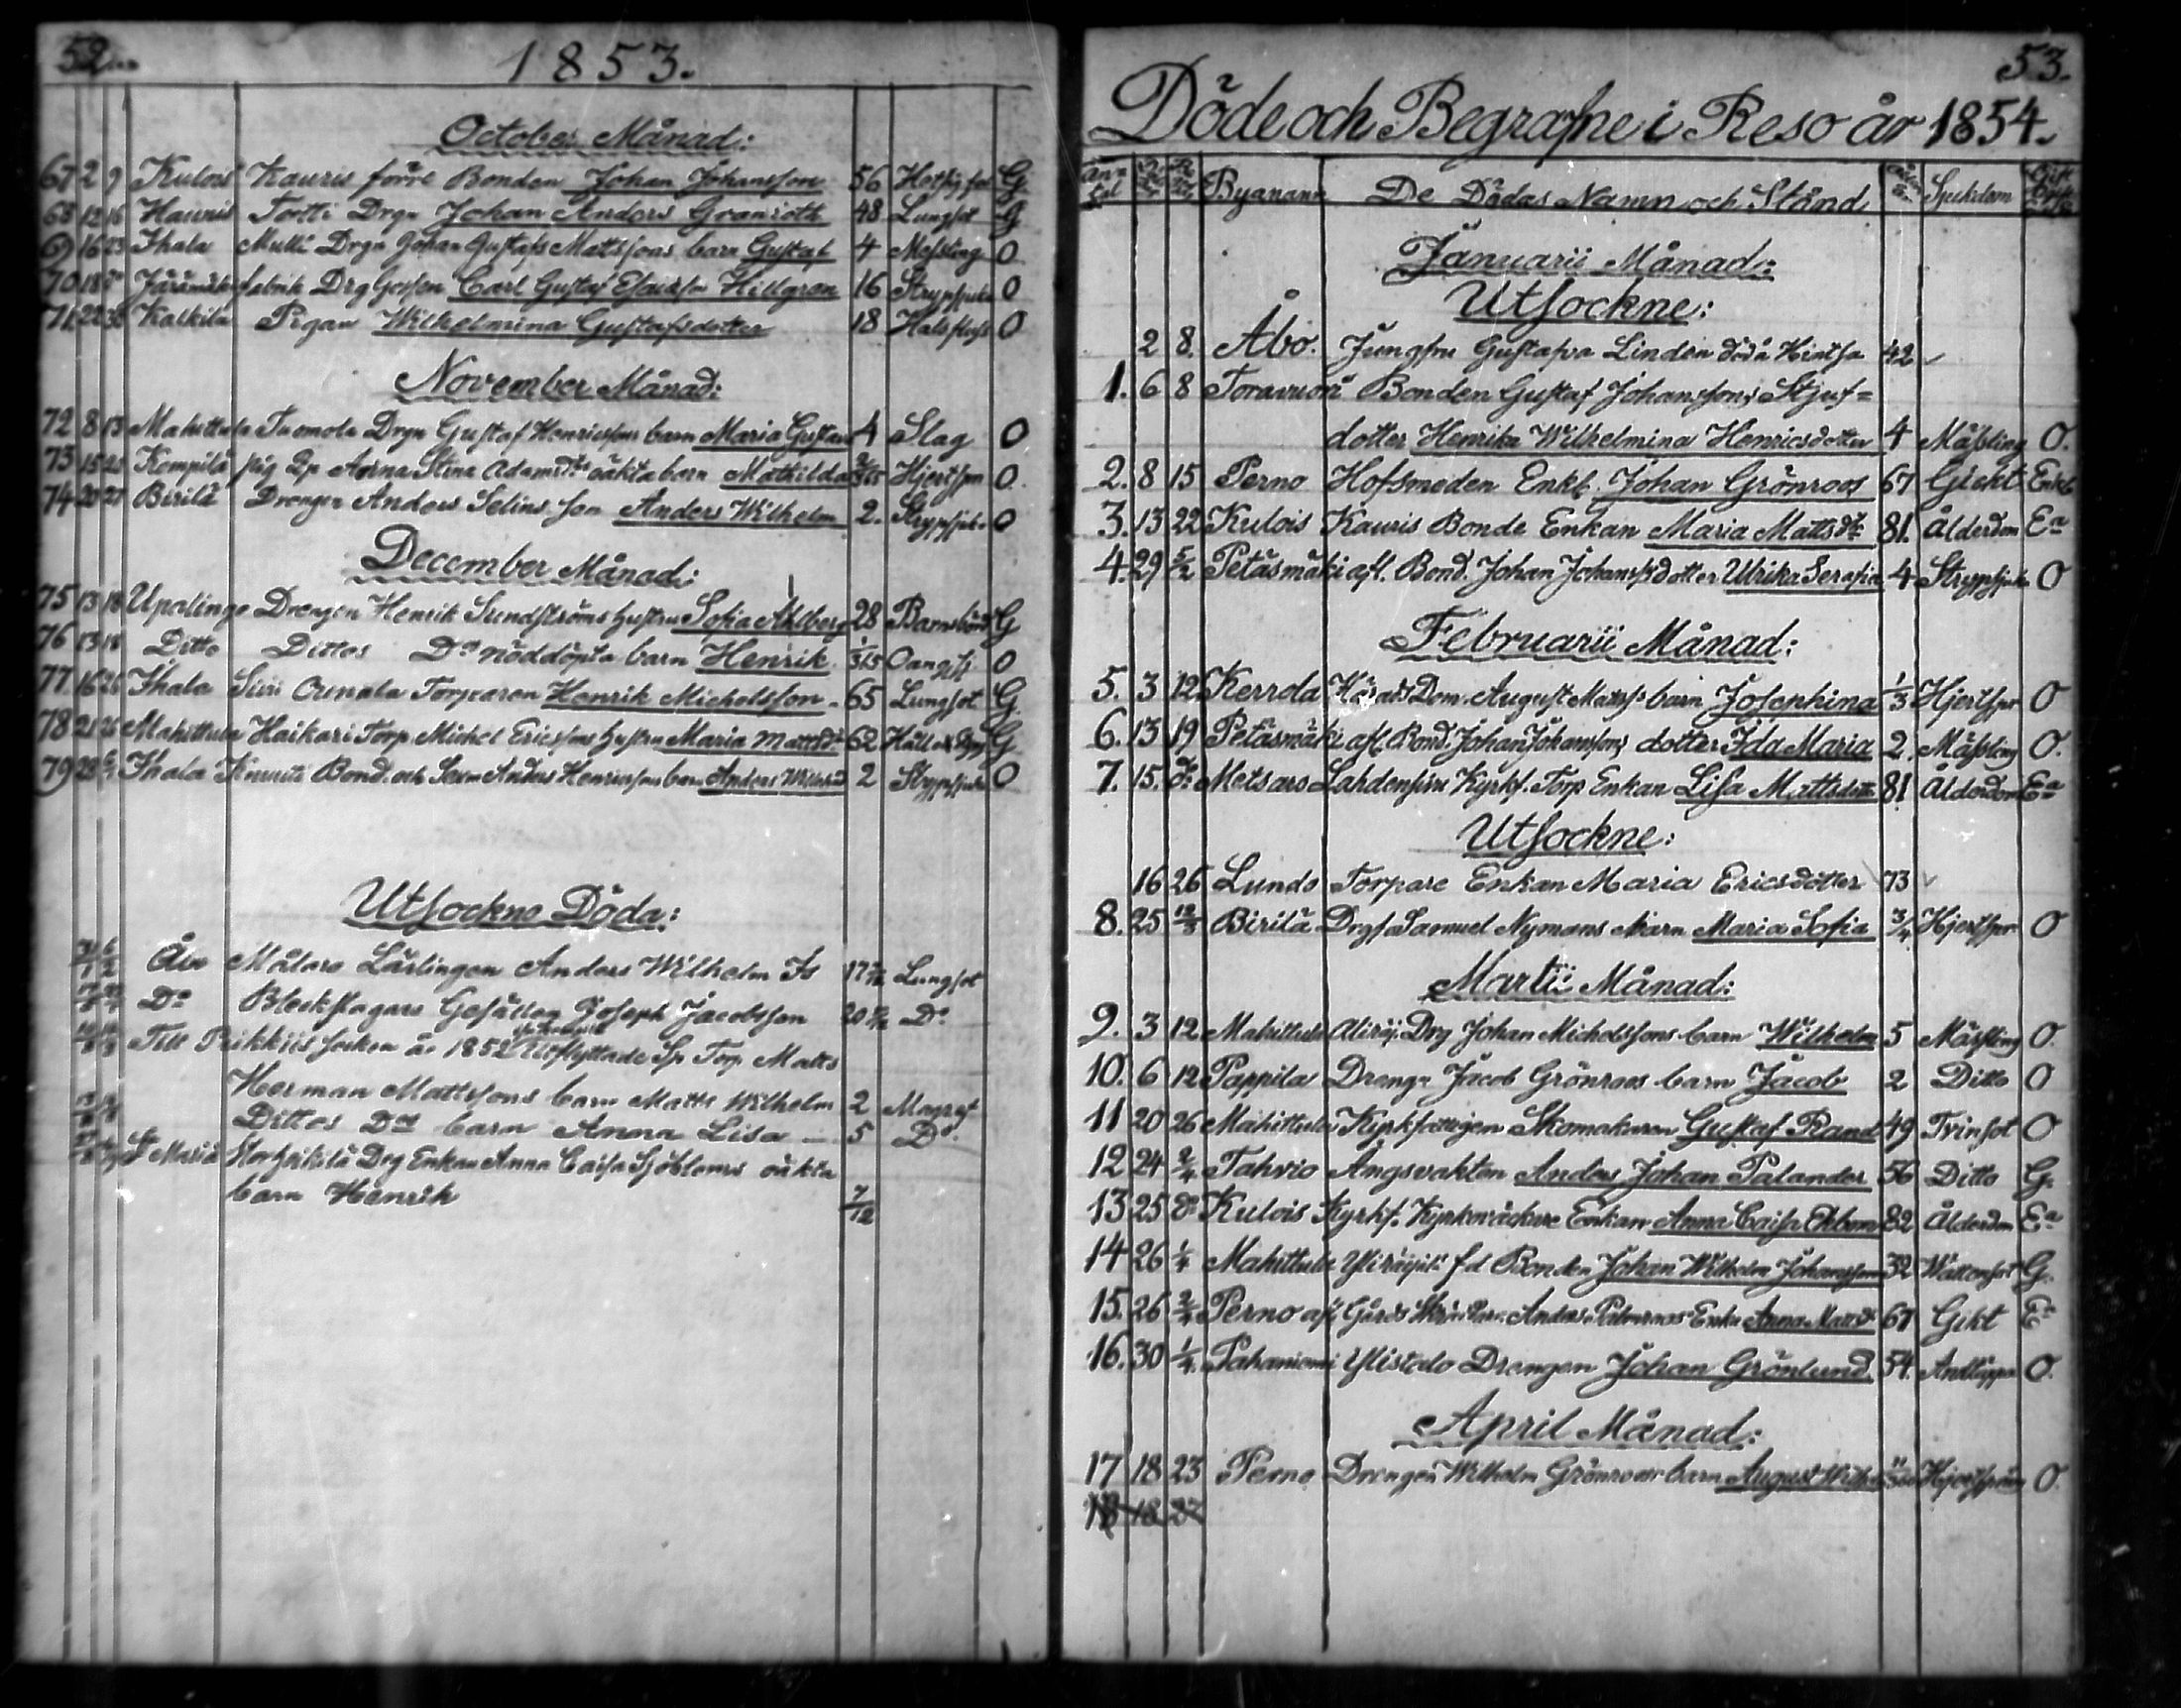 52.
1853.
October Månad:
67 2 9 Kulois Kauris förre Bonden Johan Johansson 56 Hetsig G.
68 12 16 Haunis Tortti Drgn Johan Anders Granroth 48 Lungsot G
69 16 23 Ihala Mulli Drgn Johan Gustafs Mattssons barn Gustaf 4 Messling O
70 18 Do fabrik Drg Gossen Carl Gustaf Esaiasson Hillgren 16 Strypsjuka O
71 22 30 Kaikila Pigan Wilhelmina Gustafsdotter 18 Halsfluss O
November Månad:
72 8 13 Mahittula Tuomola Drgn Gustaf Henricssons barn Maria Gustava 4 Slag O
73 15 20 Kempilä pig Anna Stina Adamsdtrs oäkta barn Mathilda Hjertspn O.
74 20 27 Birilä Drengen Anders Selins son Anders Wilhelm 2. Strypsjuk O
December Månad:
75 13 18 Upalinge Drengen Henrik Sundströms hustru Sofia Ahlberg 28 Barnsbörd G
76 13 18 Ditto Dittos Do nöddöpta barn Henrik 1/365 Oangif O
77 16 26 Ihala Sivi Torparen Henrik Michelsson 65 Lungsot G.
78 21 26 Mahittula Haikari Torp Michel Ericssons hustru Maria Mattsdr 62 Håll o G
79 28 6/1 Ihala Knuuti Bond. och Anders Henricssons barn Anders Wilhelm 2 Strypsjuk O
Utsockne Döda:
31/1 6/2 Åbo Målare Lärlingen Anders Wilhelm 17 Lungsot
Do Bleckslagare Gesällen Joseph Jacobsson 20 Do
Till Pikkiis socken år 1852 utflyttade Torp Matts
Herman Mattssons barn Matts Wilhelm 2 Magref
Dittos Dos barn Anna Lisa — 5 Do.
St Mariæ Drg Enkan Anna Caisa Sjöbloms oäkta
barn Henrik 7/12
53.
Döde och Begrafne i Reso år 1854.
Antal Byanamn De Dödas Namn och Stånd Sjukdom
Januarii Månad:
Utsockne:
2 8. Åbo. Jungfru Gustafva Linden död å Hintsa 42
1. 6 8 Toravuori Bonden Gustaf Johanssons Stjuf=
dotter Henrika Wilhelmina Henricsdotter 4 Mässling O.
2. 8 15 Perno Hofsmeden Enkl. Johan Grönroos 67 Giekt Enkl
3. 13 22 Kulois Kauris Bonde Enkan Maria Mattsdr 81. Ålderdom Ea
4. 29 5/2 Petäsmäki afl. Bond. Johan Johanss dotter Ulrika Serafia 4 Strypsjuka O
Februarii Månad:
5. 3 12 Kerrola Härads Dom. August Matss barn Josephina 1/3 Hjertspr O
6. 13 19 Petäsmäki afl. Bond. Johan Johanssons dotter Ida Maria 2. Mässling O.
7. 15. Do Metsaro Lahdensivu Kyrkf. Torp Enkan Lisa Mattsdotter 81 Ålderdom Ea
Utsockne:
16 26 Lundo Torpare Enkan Maria Ericsdotter 73
8. 25 12/3 Birilä Drgsa Samuel Nymans barn Maria Sofia 3/4 Hjertspr O
Martii Månad:
9. 3 12 Mahittula Drg Johan Michelssons barn Wilhelm 5 Mässling O.
10. 6 12 Pappila Drengn Jacob Grönroos barn Jacob 2 Ditto O
11 20 26 Mahittula Kyrkfattigen Skomakaren Gustaf Rand 49 Tvinsot O
12 24 2/4 Tahvio Ängsvakten Anders Johan Palander 56 Ditto G.
13 25 Do Kulois Kyrkf. Kyrkoväckare Enkan Anna Caisa Ekbom 82 Ålderdm Ea
14 26 1/4 Mahittula Yliräpilä f d Bonden Johan Wilhelm Johansson 32 Wattensot G.
15. 26 2/4 Perno afl. Gårds Anders Palmroos Enka Anna Mattsdr 67 Gikt Ea
16. 30 1/4 Pahaniemi Ylistalo Drengen Johan Grönlund 54. Andtäppa O.
April Månad:
17 18 23 Perno Drengen Wilhelm Grönroos barn August Wilhelm Hjertsprång O.
18 18 27